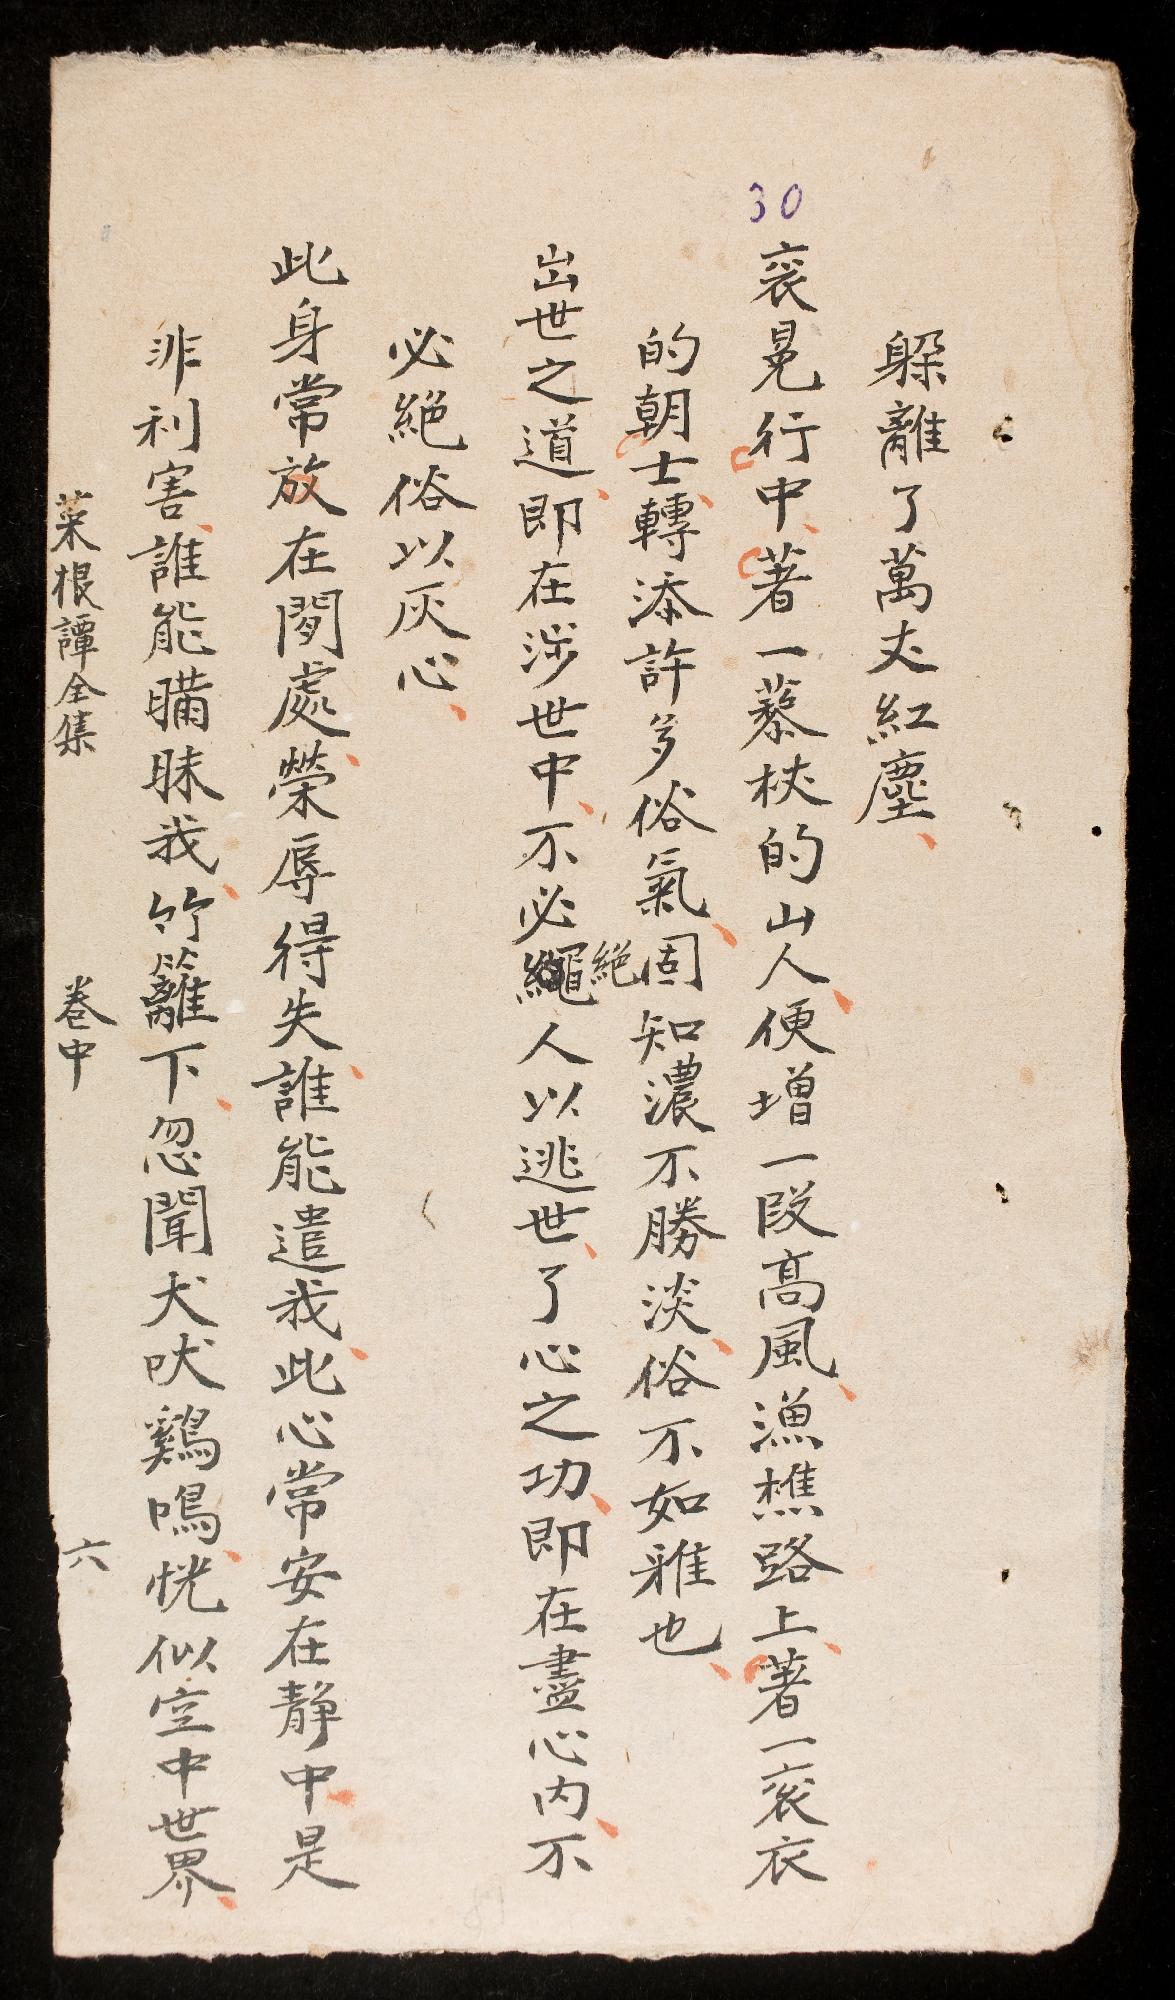 30
躲離了萬丈紅塵、
袞冕行中、著一藜杖的山人、便增一段高風、漁樵路上、著一袞衣
的朝士、轉添許多俗氣、固知濃不勝淡、俗不如雅也、
出世之道、即在涉世中、不必絕人以逃世、了心之功、即在盡心內、不
必絕俗以灰心、
此身常放在閒處、榮辱得失、誰能遣我、此心常安在靜中、是
非利害、誰能瞞昧我、竹籬下、忽聞犬吠鷄鳴、恍似空中世界、
菜根譚全集 卷中 六